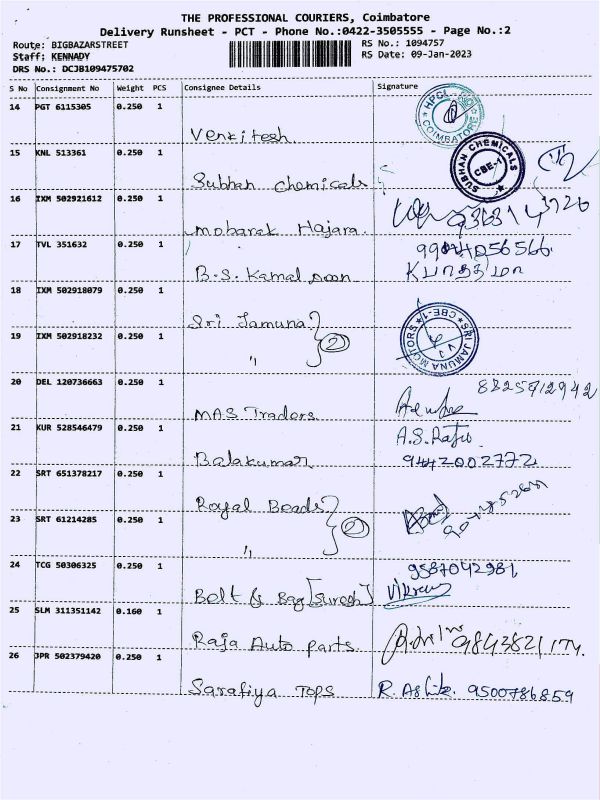 THE PROFESSIONAL COURIERS, Coimbatore
Delivery Runsheet - PCT - Phone No.:0422-3505555 - Page No.:2
Route: BIGBAZARSTREET RS No.: 1094757
Staff: KENNADY RS Date: 09-Jan-2023
DRS No.: DCJB109475702
S No Consignment No Weight PCS Consignee Details Signature
14 PGT 6115305 0.250 1
Venkitesh HPCL COIMBATORE
15 KNL 513361 0.250 1
Subhan Chemicals SUBHAN CHEMICALS CBE-1
16 IXM 502921612 0.250 1
Mobarak Hajara
17 TVL 351632 0.250 1
B.S. Kamaloon
18 IXM 502918079 0.250 1
Sri Jamuna 2 SRI JAMUNA MOTORS CBE-1
19 IXM 502918232 0.250 1
"
20 DEL 120736663 0.250 1 8825912942
MAS Traders
21 KUR 528546479 0.250 1 A.S. Rafiu
Balakumar 9442002772
22 SRT 651378217 0.250 1
Royal Beads 2
23 SRT 61214285 0.250 1
"
24 TCG 50306325 0.250 1 9587042981
Belt & Bag [Suresh] Vikram
25 SLM 311351142 0.160 1
Raja Auto parts.
26 JPR 502379420 0.250 1
Sarafiya Tops R. Ashik. 9500786859